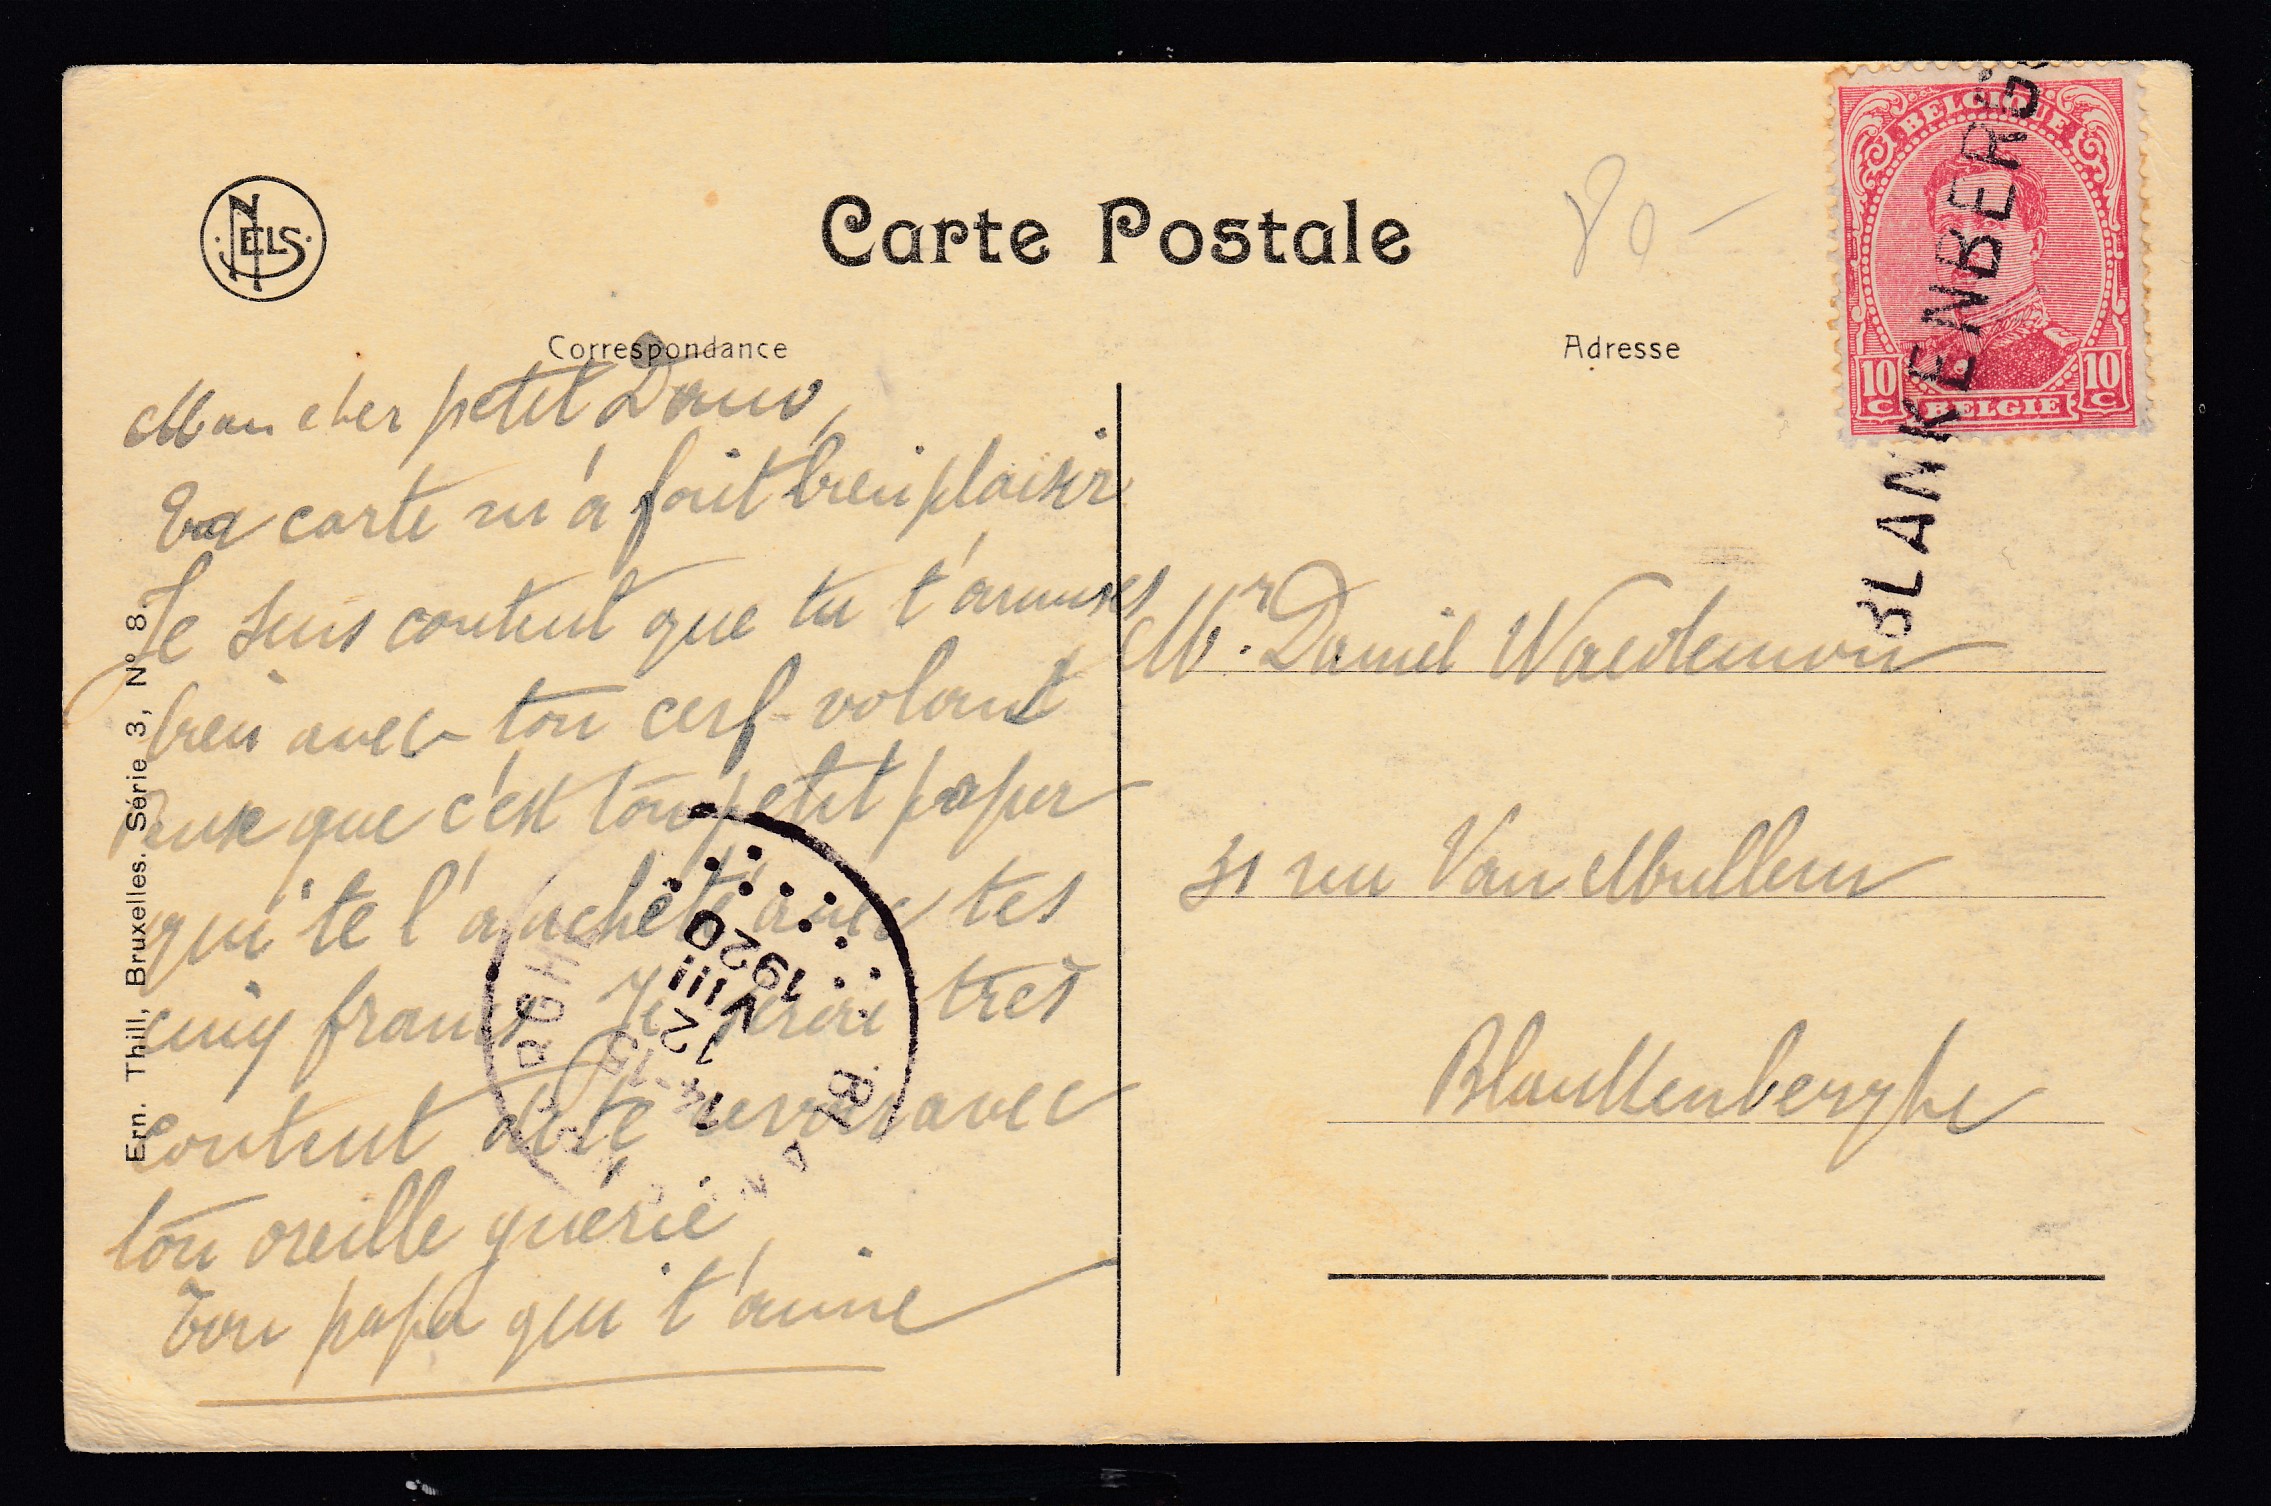 NELS
Carte Postale
80 -
Correspondance
Adresse
BELGIQUE
10 C
BELGIE
10 C
BLANKENBERG
Mon cher petit Dany,
Ta carte m'a fait bien plaisir
Je suis content que tu t'amuses
bien avec ton cerf-volant
Pense que c'est ton petit paper
qui te l'a acheté avec tes
cinq francs Je serai très
content de te revoir avec
ton oreille guérie
Ton papa qui t'aime
Mr. Daniel Waedemon
31 rue Van Mullem
Blankenberghe
12 VIII
1920
Ern. Thill, Bruxelles. Série 3, No 8.